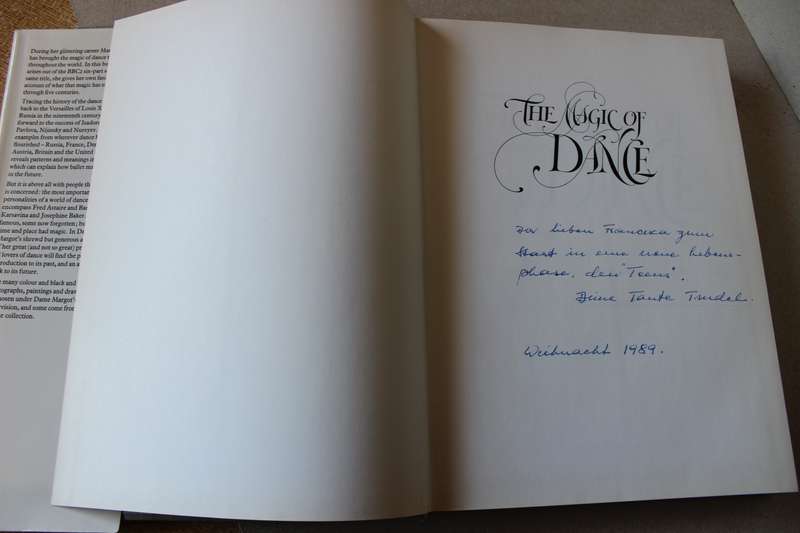 During her glittering career Mar
has brought the magic of dance t
throughout the world. In this bo
arises out of the BBC2 six-part s
same title, she gives her own
account of what that magic has m
through five centuries.
Tracing the history of the dance
back to the Versailles of Louis X
Russia in the nineteenth century
forward to the success of Isadora
Pavlova, Nijinsky and Nureyev,
examples from wherever dance h
flourished – Russia, France, De
Austria, Britain and the United
reveals patterns and meanings i
which can explain how ballet m
in the future.
But it is above all with people th
is concerned: the most important
personalities of a world of dance
encompass Fred Astaire and
Karsavina and Josephine Baker.
famous, some now forgotten; bu
time and place had magic. In D
Margot's shrewd but generous a
of her great (and not so great) pr
lovers of dance will find the p
production to its past, and an a
k to its future.
many colour and black and
tographs, paintings and draw
osen under Dame Margot's
vision, and some come from
e collection.
THE MAGIC OF
DANCE
Der lieben Franziska zum
Start in eine neue Lebens-
phase, den "Teens".
Deine Tante Trudel.
Weihnacht 1989.